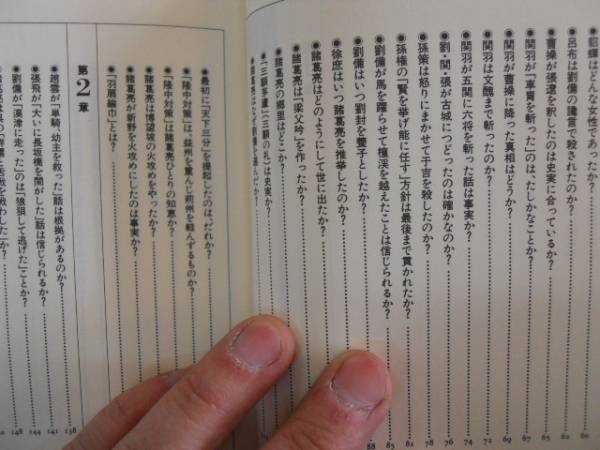 ●貂蟬はどんな女性であったか？…… 60
●呂布は劉備の讒言で殺されたのか？…… 61
●曹操が張遼を釈したのは史実に合っているか？…… 62
●関羽が「車冑を斬った」のは、たしかなことか？…… 65
●関羽が曹操に降った真相はどうか？…… 67
●関羽は文醜まで斬ったのか？…… 69
●関羽が五関に六将を斬った話は事実か？…… 72
●劉・関・張が古城につどったのは確かなのか？…… 74
●孫策は怒りにまかせて于吉を殺したのか？…… 76
●孫権の「賢を挙げ能に任す」方針は最後まで貫かれたか？…… 78
●劉備がいつ劉封を養子としたか？…… 81
●劉備が馬を躍らせて檀渓を越えたことは信じられるか？…… 85
●徐庶はいつ諸葛亮を推挙したのか？…… 88
●諸葛亮はどのようにして世に出たか？
●諸葛亮は「梁父吟」を作ったか？
●諸葛亮の郷里はどこか？
●「三顧茅廬」（三顧の礼）は史実か？
●最初に「天下三分」を提起したのは、だれか？
●「隆中対策」は、益州を重んじ荊州を軽んずるものか？
●「隆中対策」は諸葛亮ひとりの知恵か？
●諸葛亮は博望坡の火攻めをやったか？
●諸葛亮が新野を火攻めにしたのは事実か？
●「羽扇綸巾」とは？
第2章
●趙雲が「単騎、幼主を救った」話は根拠があるのか？…… 138
●張飛が「大いに長坂橋を鬧がした」話は信じられるか？…… 141
●劉備が「漢津に走った」のは「狼狽して逃げた」ことか？…… 144
148